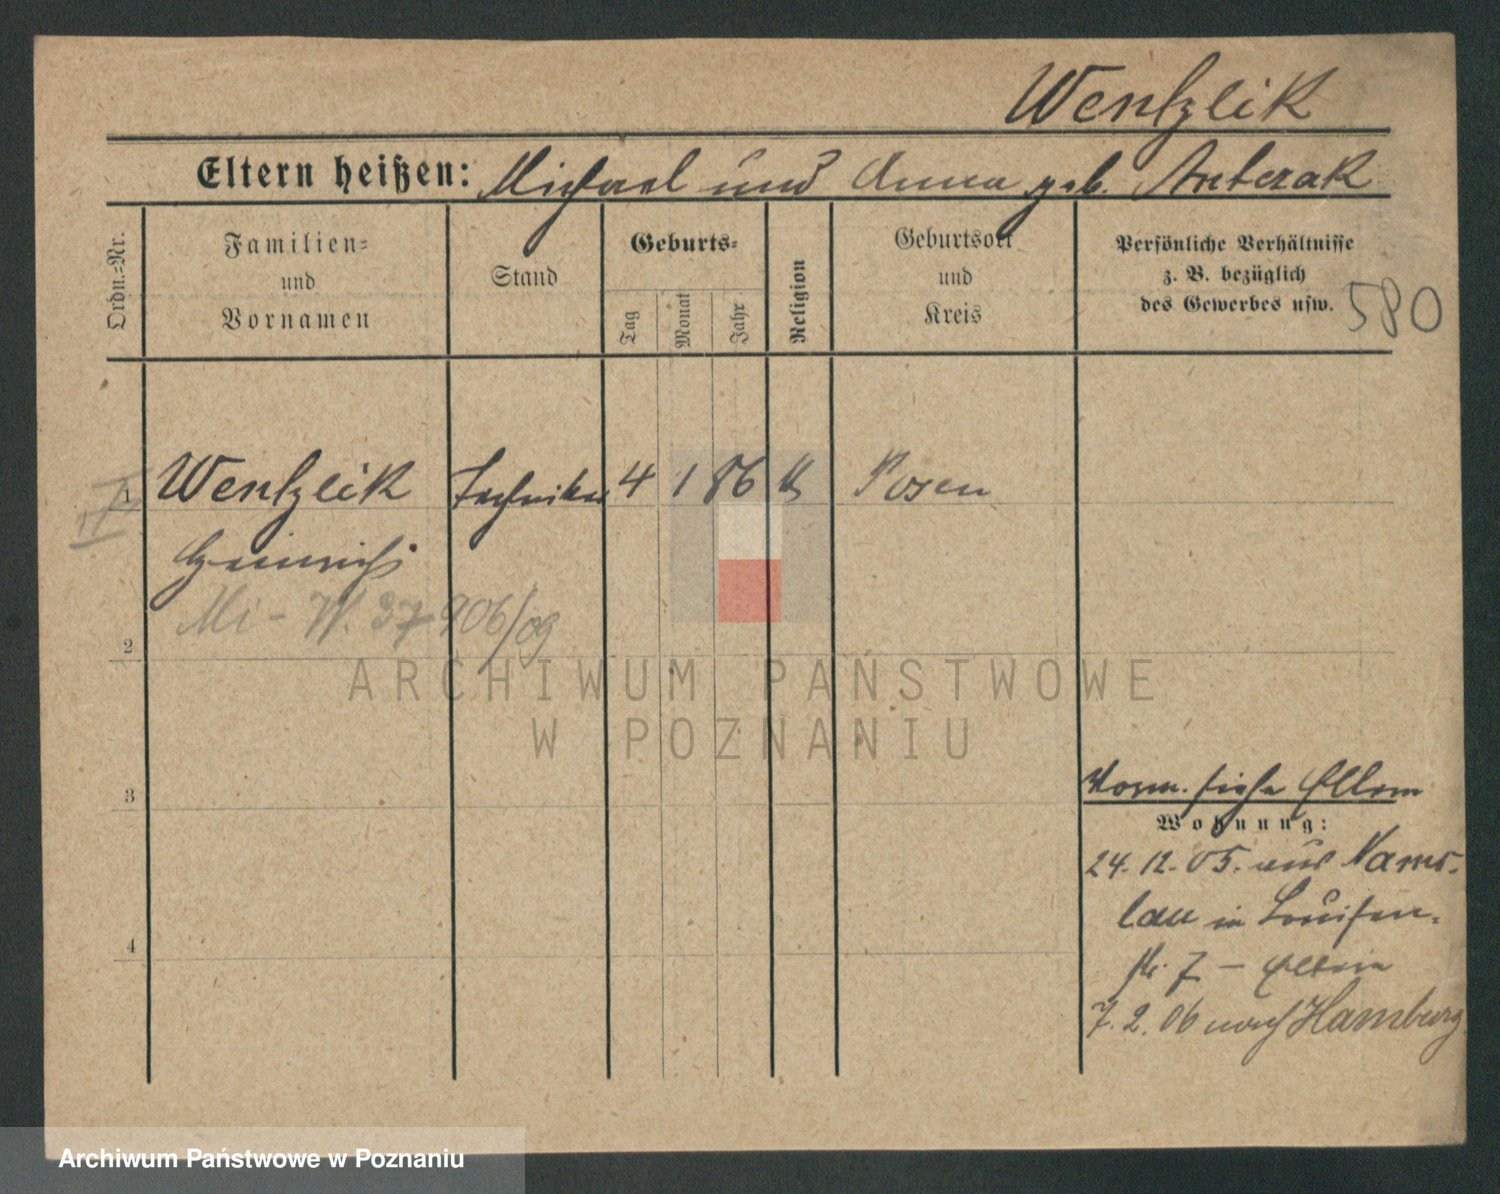 Wentzlik
Eltern heißen: Michael und Anna geb. Antczak
Ordn.-Nr.
Familien-
und
Vornamen
Stand
Geburts-
Tag
Monat
Jahr
Religion
Geburtsort
und
Kreis
Persönliche Verhältnisse
z. B. bezüglich
des Gewerbes usw.
580
1 Wentzlik Techniker 4 1 86 k Posen
Heinrich
Mi - W. 37 906/09
2
ARCHIWUM PAŃSTWOWE
W POZNANIU
3
Vorm. siehe Eltern
Wohnung:
24.12.05. aus Nams-
lau in Louisen-
str. 7 — Eltern
4
7.2.06 nach Hamburg
Archiwum Państwowe w Poznaniu